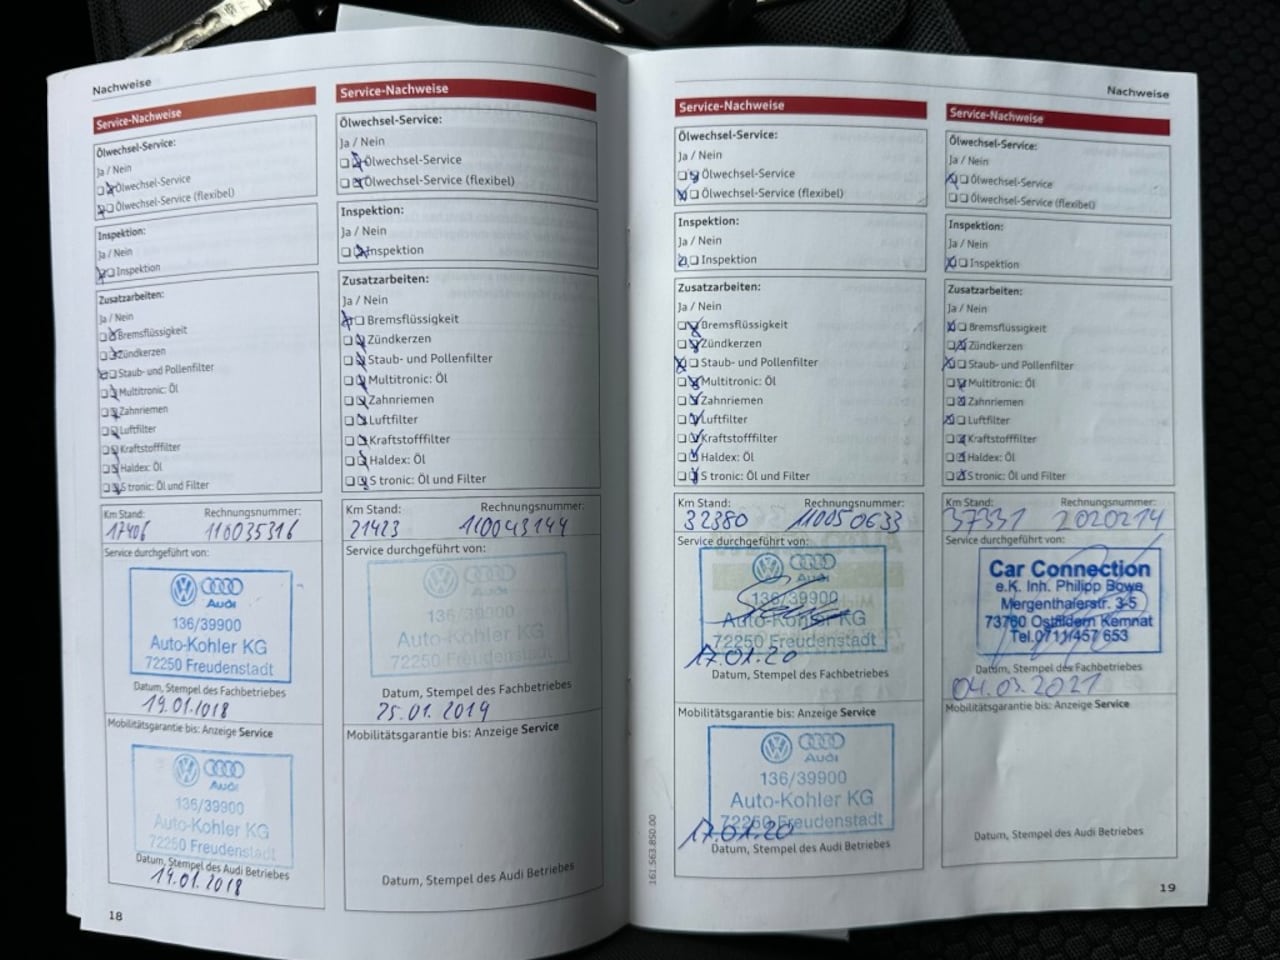 Nachweise
Service-Nachweise
Ölwechsel-Service:
Ja / Nein
Ölwechsel-Service
Ölwechsel-Service (flexibel)
Inspektion:
Ja / Nein
Inspektion
Zusatzarbeiten:
Ja / Nein
Bremsflüssigkeit
Zündkerzen
Staub- und Pollenfilter
Multitronic: Öl
Zahnriemen
Luftfilter
Kraftstofffilter
Haldex: Öl
S tronic: Öl und Filter
Km Stand: Rechnungsnummer:
17406 110035316
Service durchgeführt von:
Audi
136/39900
Auto-Kohler KG
72250 Freudenstadt
Datum, Stempel des Fachbetriebes
19.01.1018
Mobilitätsgarantie bis: Anzeige Service
Audi
136/39900
Auto-Kohler KG
72250 Freudenstadt
Datum, Stempel des Audi Betriebes
19.01.2018
18
Service-Nachweise
Ölwechsel-Service:
Ja / Nein
Ölwechsel-Service
Ölwechsel-Service (flexibel)
Inspektion:
Ja / Nein
Inspektion
Zusatzarbeiten:
Ja / Nein
Bremsflüssigkeit
Zündkerzen
Staub- und Pollenfilter
Multitronic: Öl
Zahnriemen
Luftfilter
Kraftstofffilter
Haldex: Öl
S tronic: Öl und Filter
Km Stand: Rechnungsnummer:
21423 110043144
Service durchgeführt von:
Audi
136/39900
Auto-Kohler KG
72250 Freudenstadt
Datum, Stempel des Fachbetriebes
25.01.2019
Mobilitätsgarantie bis: Anzeige Service
Datum, Stempel des Audi Betriebes
Nachweise
Service-Nachweise
Ölwechsel-Service:
Ja / Nein
Ölwechsel-Service
Ölwechsel-Service (flexibel)
Inspektion:
Ja / Nein
Inspektion
Zusatzarbeiten:
Ja / Nein
Bremsflüssigkeit
Zündkerzen
Staub- und Pollenfilter
Multitronic: Öl
Zahnriemen
Luftfilter
Kraftstofffilter
Haldex: Öl
S tronic: Öl und Filter
Km Stand: Rechnungsnummer:
32380 110050633
Service durchgeführt von:
Audi
136/39900
Auto-Kohler KG
72250 Freudenstadt
17.01.20
Datum, Stempel des Fachbetriebes
Mobilitätsgarantie bis: Anzeige Service
Audi
136/39900
Auto-Kohler KG
72250 Freudenstadt
17.01.20
Datum, Stempel des Audi Betriebes
161.563.850.00
Service-Nachweise
Ölwechsel-Service:
Ja / Nein
Ölwechsel-Service
Ölwechsel-Service (flexibel)
Inspektion:
Ja / Nein
Inspektion
Zusatzarbeiten:
Ja / Nein
Bremsflüssigkeit
Zündkerzen
Staub- und Pollenfilter
Multitronic: Öl
Zahnriemen
Luftfilter
Kraftstofffilter
Haldex: Öl
S tronic: Öl und Filter
Km Stand: Rechnungsnummer:
37331 2020214
Service durchgeführt von:
Car Connection
e.K. Inh. Philipp Bowe
Mergenthalerstr. 3-5
73760 Ostfildern Kemnat
Tel.0711/457 653
Datum, Stempel des Fachbetriebes
04.03.2021
Mobilitätsgarantie bis: Anzeige Service
Datum, Stempel des Audi Betriebes
19